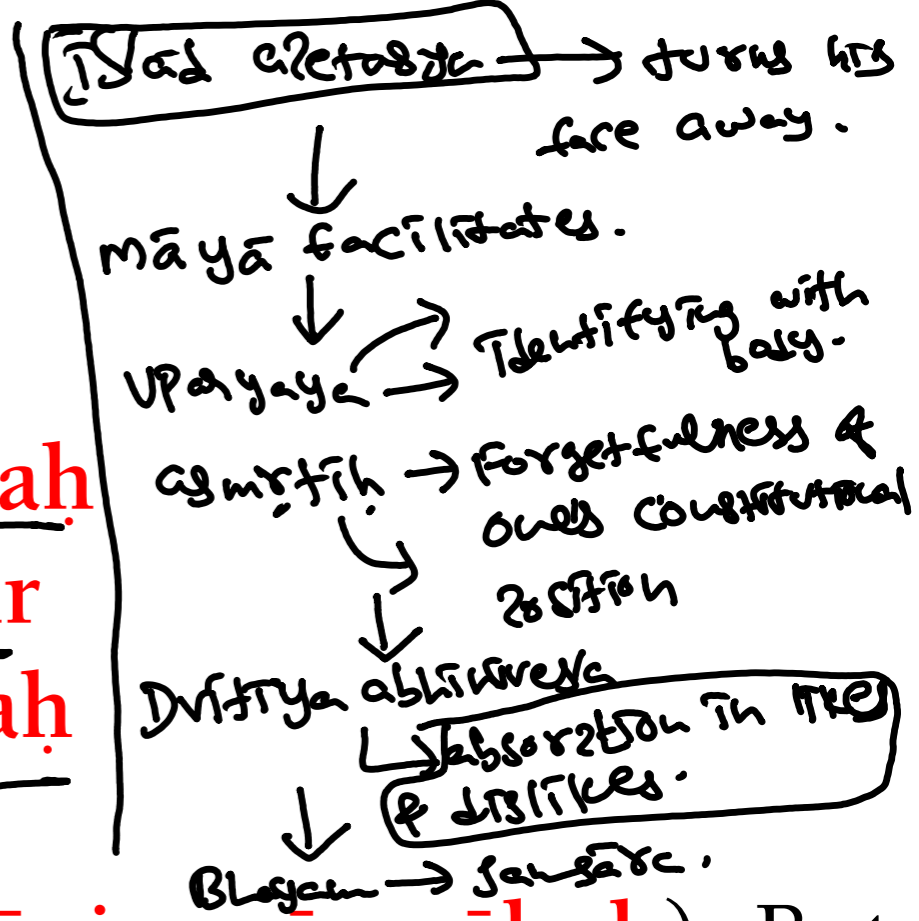 Īśād apetasya → turns his
face away.
māyā facilitates.
Viparyaya → identifying with
body.
asmṛtiḥ → Forgetfulness of
one's constitutional
position
Dvitiya abhinivesa
absorption in likes
& dislikes.
Bhayam → samsāra.
aḥ
r
aḥ
). But